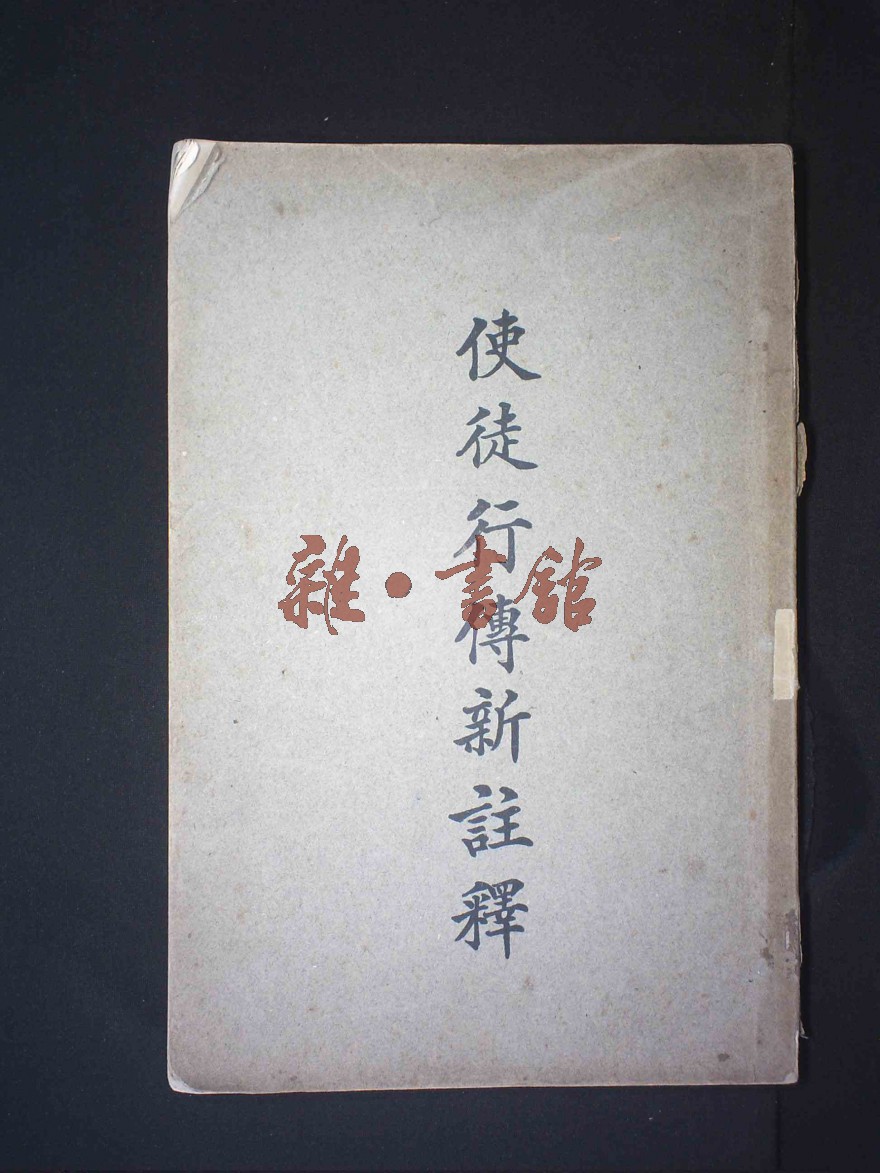 使徒行傳新註釋
雜·書館